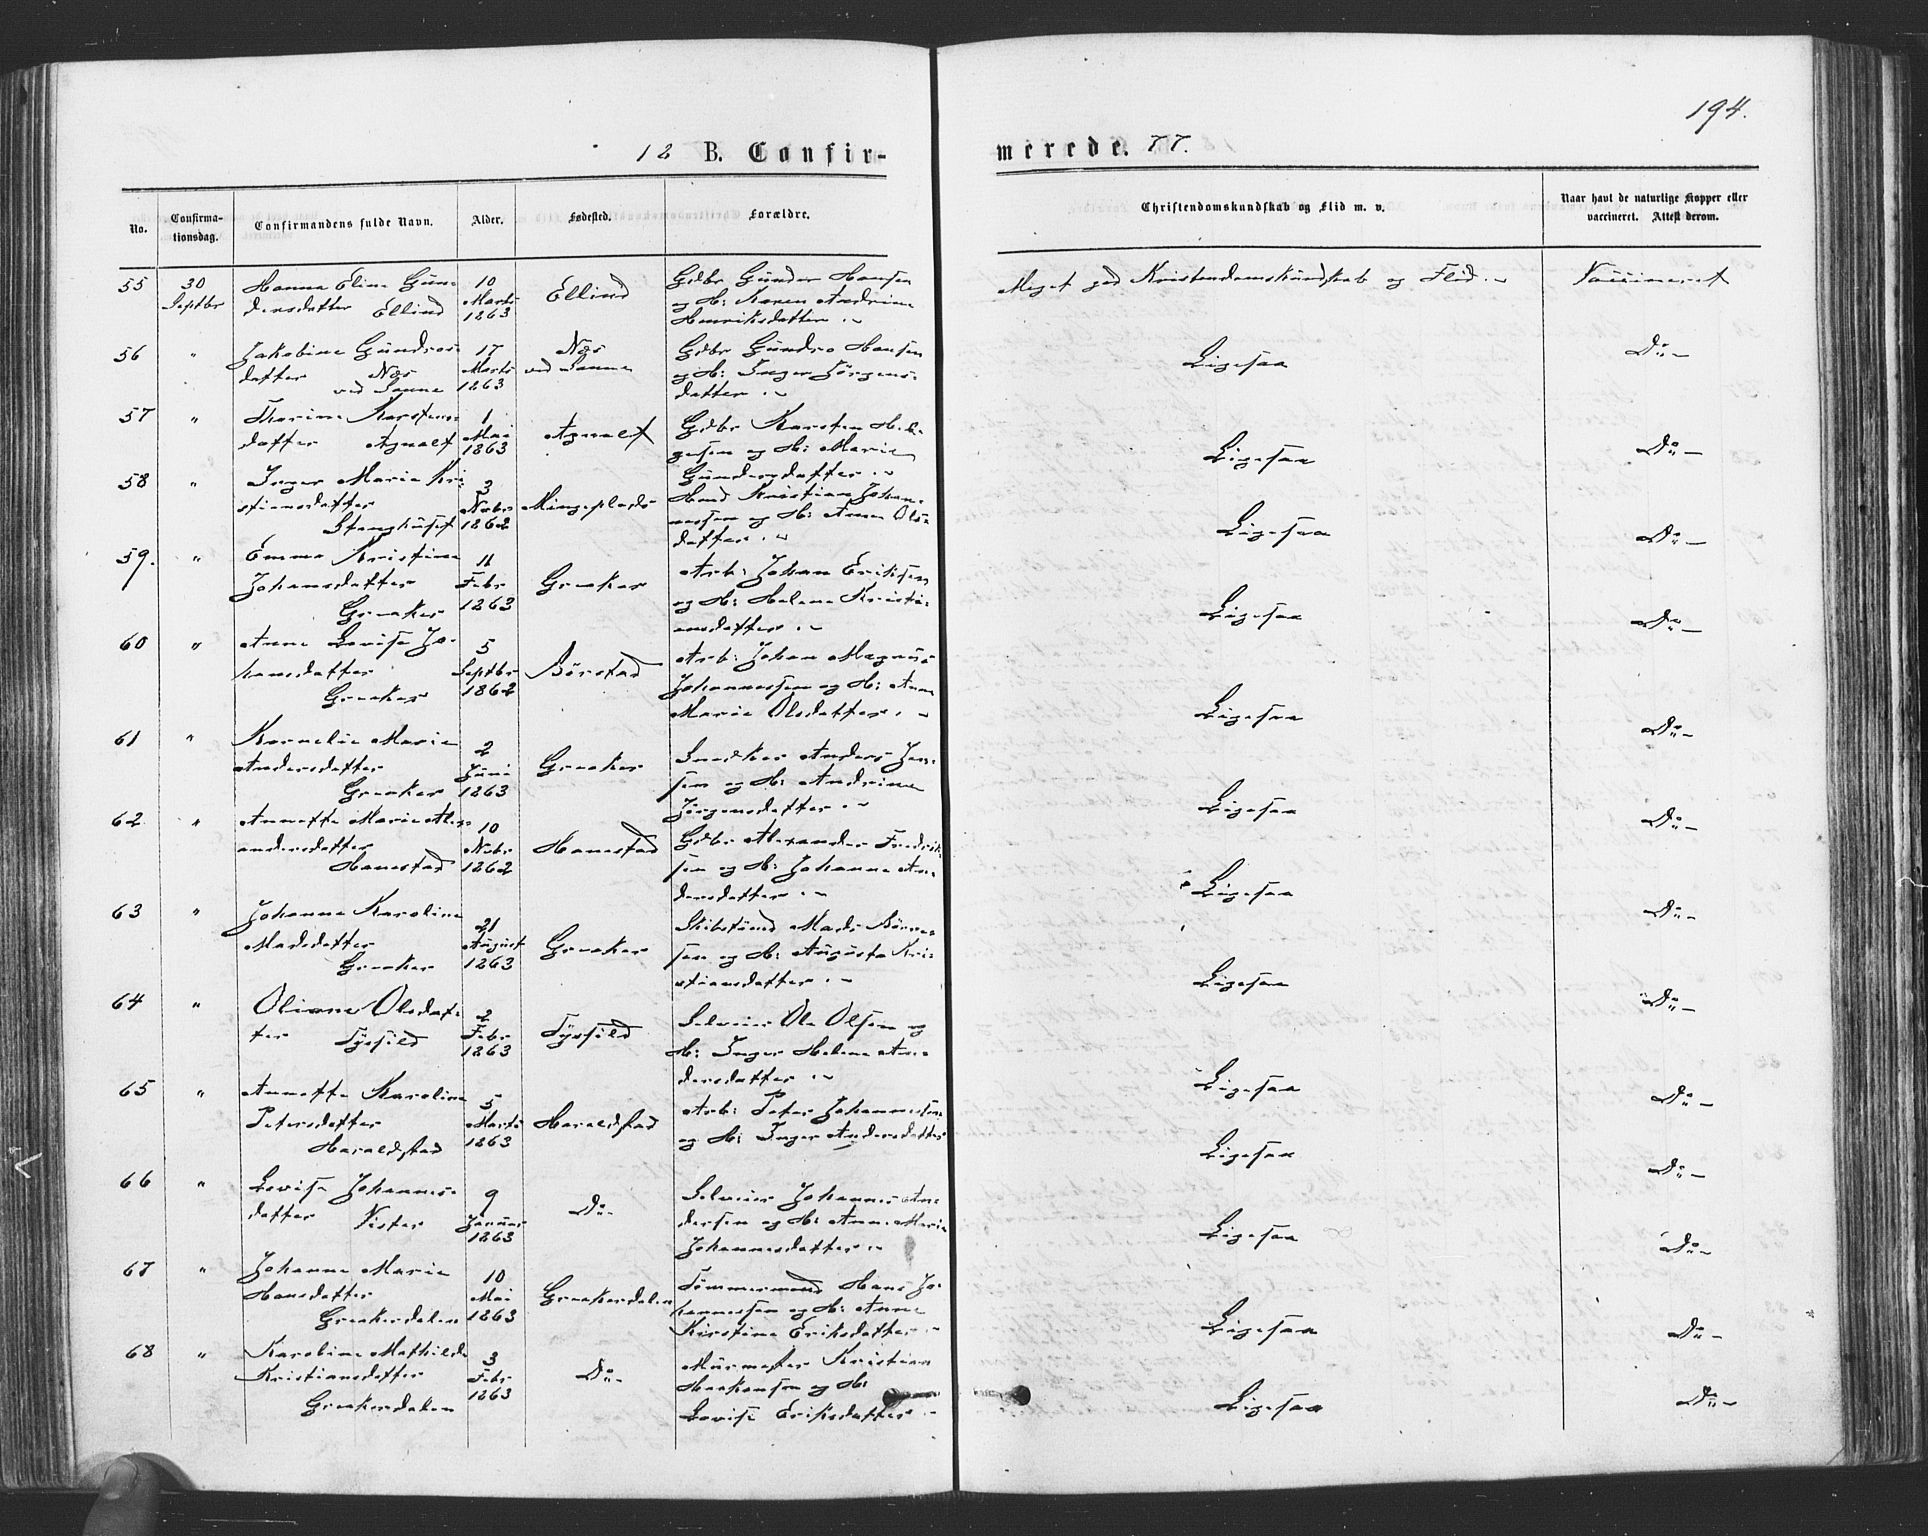 194.
18 B. Confirmerede. 77.
No. Confirmationsdag. Confirmandens fulde Navn. Alder. Fødested. Forældre. Christendomskundskab og Flid m. v. Naar havt de naturlige Kopper eller vaccineret. Attest derom.
55 30 Septbr Hanna Eline Gundersdatter Ellind 10 Marts 1863 Ellind Gdbr Gunder Hansen og H: Karen Andrine Henriksdatter .~ Meget god Kristendomskundskab og Flid .~ Vaccineret
56 " Jakobine Gundrosdatter Næs ved Sanne 17 Marts 1863 Næs ved Sanne Gdbr Gundro Hansen og H: Inger Jørgensdatter .~ Ligesaa Do –
57 " Karstensdatter Agnalt 1 Mai 1863 Agnalt Gdbr Karsten Helgesen og H: Marie Gundersdatter .~ Ligesaa Do –
58 " Inger Marie Kristiansdatter Stenghuset 3 Novbr 1862 Mingeplads Kristian Johannessen og H: Anne Olsdatter .~ Ligesaa Do –
59. " Emma Kristine Johansdatter Greaker 11 Febr 1863 Greaker Arb: Johan Eriksen og H: Helene Kristiansdatter .~ Ligesaa Do –
60 " Anne Lovise Johansdatter Greaker 5 Septbr 1862 Børstad Arb: Johan Magnus Johannessen og H: Anne Marie Olsdatter .~ Ligesaa Do –
61 " Kornelie Marie Andersdatter Greaker 2 Juni 1863 Greaker Snedker Anders Jensen og H: Andrine Jørgensdatter .~ Ligesaa Do –
62 " Annette Marie Alexandersdatter Hanestad 10 Novbr 1862 Hanestad Gdbr Alexander Fredriksen og H: Johanne Andersdatter .~ Ligesaa Do –
63 " Johanne Karoline Madsdatter Greaker 21 August 1863 Greaker Mads og H: Augusta Kristiansdatter .~ Ligesaa Do –
64 " Oliane Olsdatter 2 Febr 1863 Selveier Ole Olsen og H: Inger Helene Andersdatter .~ Ligesaa Do –
65 " Annette Karoline Petersdatter Haraldstad 5 Marts 1863 Haraldstad Arb: Peter Johannessen og H: Inger Andersdatter Ligesaa Do –
66 " Lovise Johannesdatter Vister 9 Januar 1863 Do – Selveier Johannes Andersen og H: Anne Marie Johannesdatter .~ Ligesaa Do –
67 " Johanne Marie Hansdatter Greakerdalen 10 Mai 1863 Greakerdalen Tømmermand Hans Johannessen og H: Anne Kirstine Eriksdatter .~ Ligesaa Do –
68 " Karoline Mathilde Kristiansdatter Greakerdalen 3 Febr 1863 Do – Murmester Kristian Haakensen og H: Lovise Eriksdatter .~ Ligesaa Do –
Ligesaa Do –